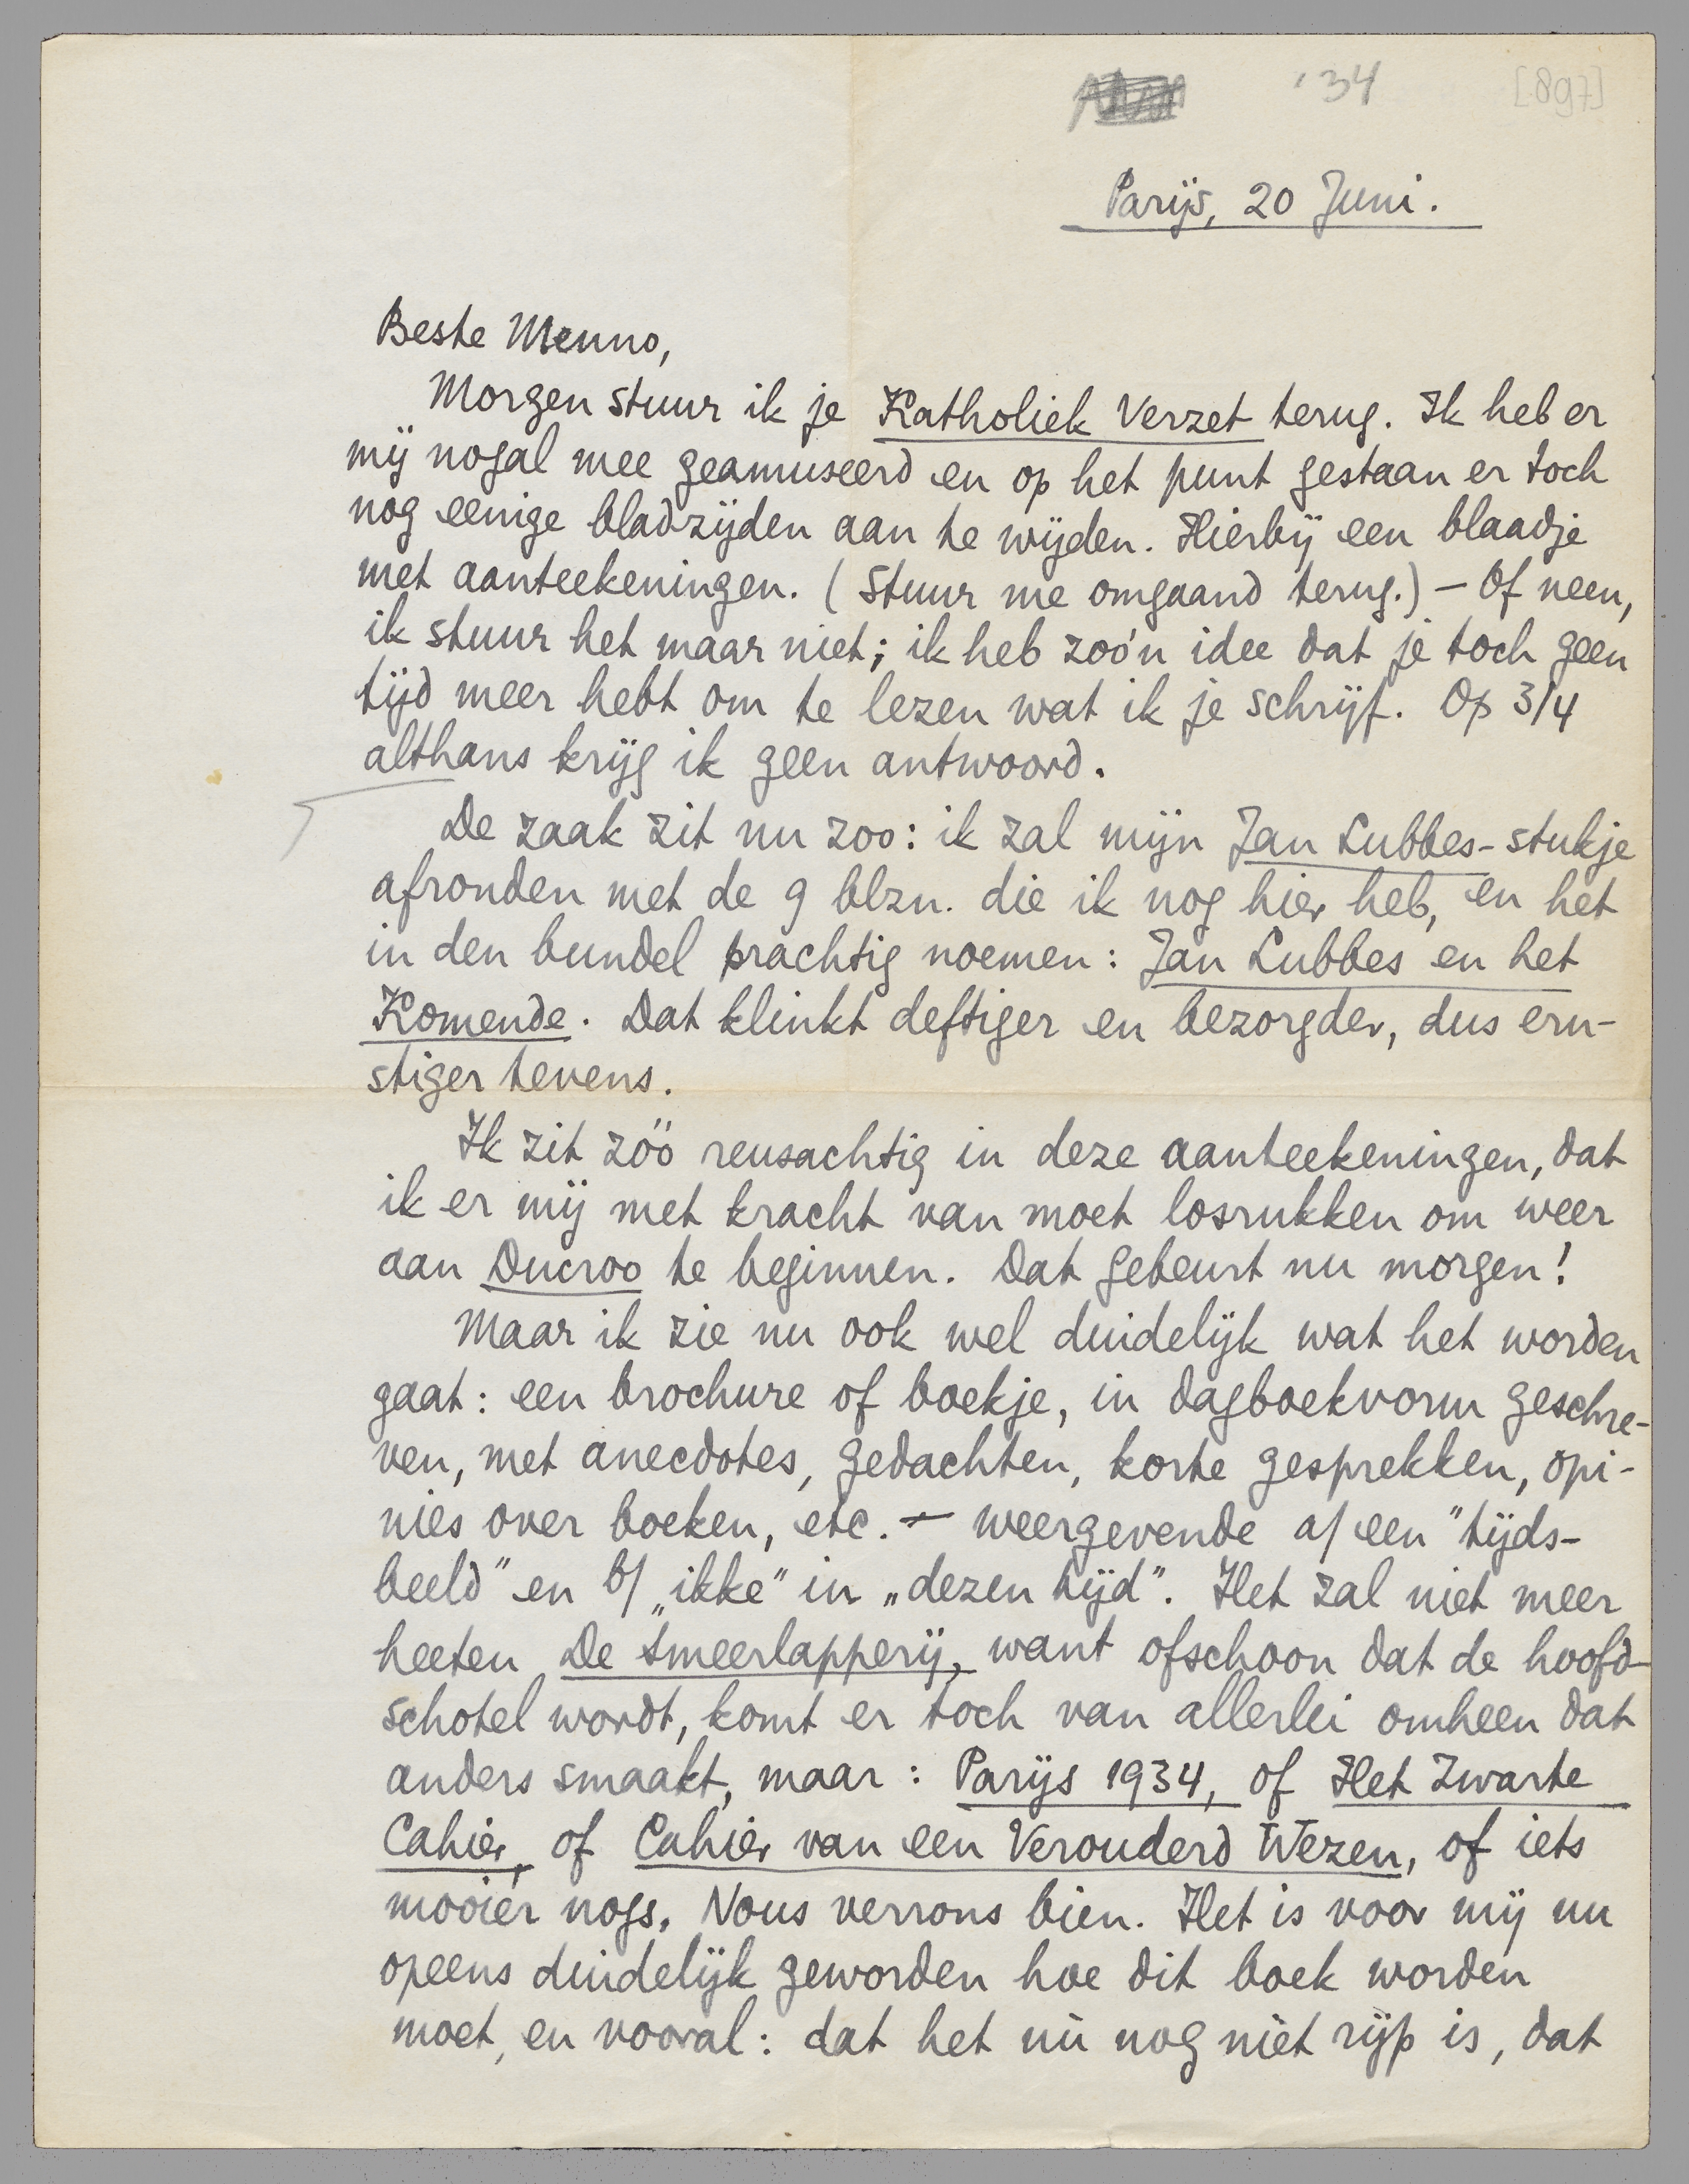 '34 [897]
Parijs, 20 Juni.
Beste Menno,
Morgen stuur ik je Katholiek Verzet terug. Ik heb er
mij nogal mee geamuseerd en op het punt gestaan er toch
nog eenige bladzijden aan te wijden. Hierbij een blaadje
met aanteekeningen. (Stuur me omgaand terug.) – Of neen,
ik stuur het maar niet; ik heb zoo'n idee dat je toch geen
tijd meer hebt om te lezen wat ik je schrijf. Op 3/4
althans krijg ik geen antwoord.
De zaak zit nu zoo: ik zal mijn Jan Lubbes-stukje
afronden met de 9 blzn. die ik nog hier heb, en het
in den bundel prachtig noemen: Jan Lubbes en het
Komende. Dat klinkt deftiger en bezorgder, dus ern-
stiger tevens.
Ik zit zóó reusachtig in deze aanteekeningen, dat
ik er mij met kracht van moet losrukken om weer
aan Ducroo te beginnen. Dat gebeurt nu morgen!
Maar ik zie nu ook wel duidelijk wat het worden
gaat: een brochure of boekje, in dagboekvorm geschre-
ven, met anecdotes, gedachten, korte gesprekken, opi-
nies over boeken, etc. – weergevende a/ een "tijds-
beeld" en b/ „ikke" in „dezen tijd". Het zal niet meer
heeten De Smeerlapperij, want ofschoon dat de hoofd-
schotel wordt, komt er toch van allerlei omheen dat
anders smaakt, maar: Parijs 1934, of Het Zwarte
Cahier, of Cahier van een Verouderd Wezen, of iets
mooiers nogs. Nous verrons bien. Het is voor mij nu
opeens duidelijk geworden hoe dit boek worden
moet, en vooral: dat het nù nog niet rijp is, dat